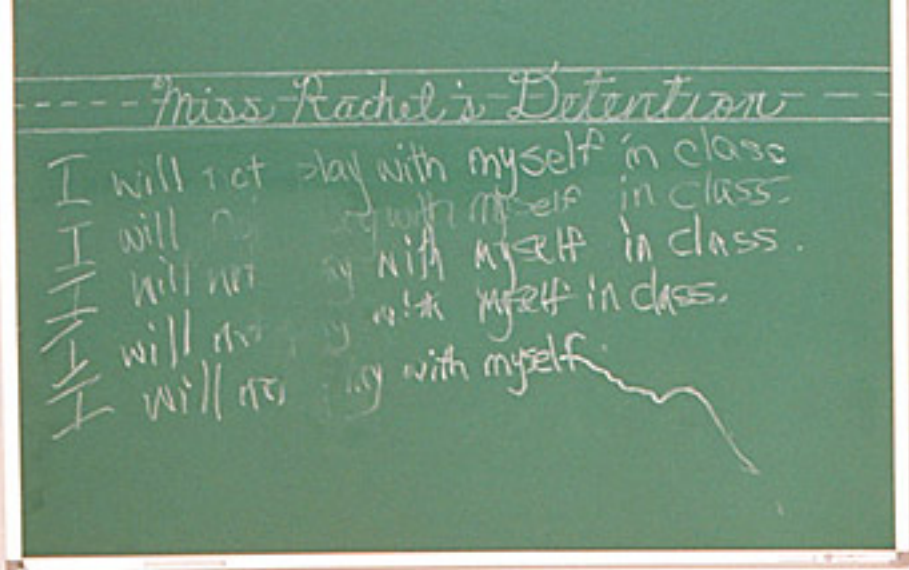 Miss Rachel's Detention
I will not play with myself in class
I will with myself in class.
I will not with myself in class.
I will with myself in class.
I will play with myself